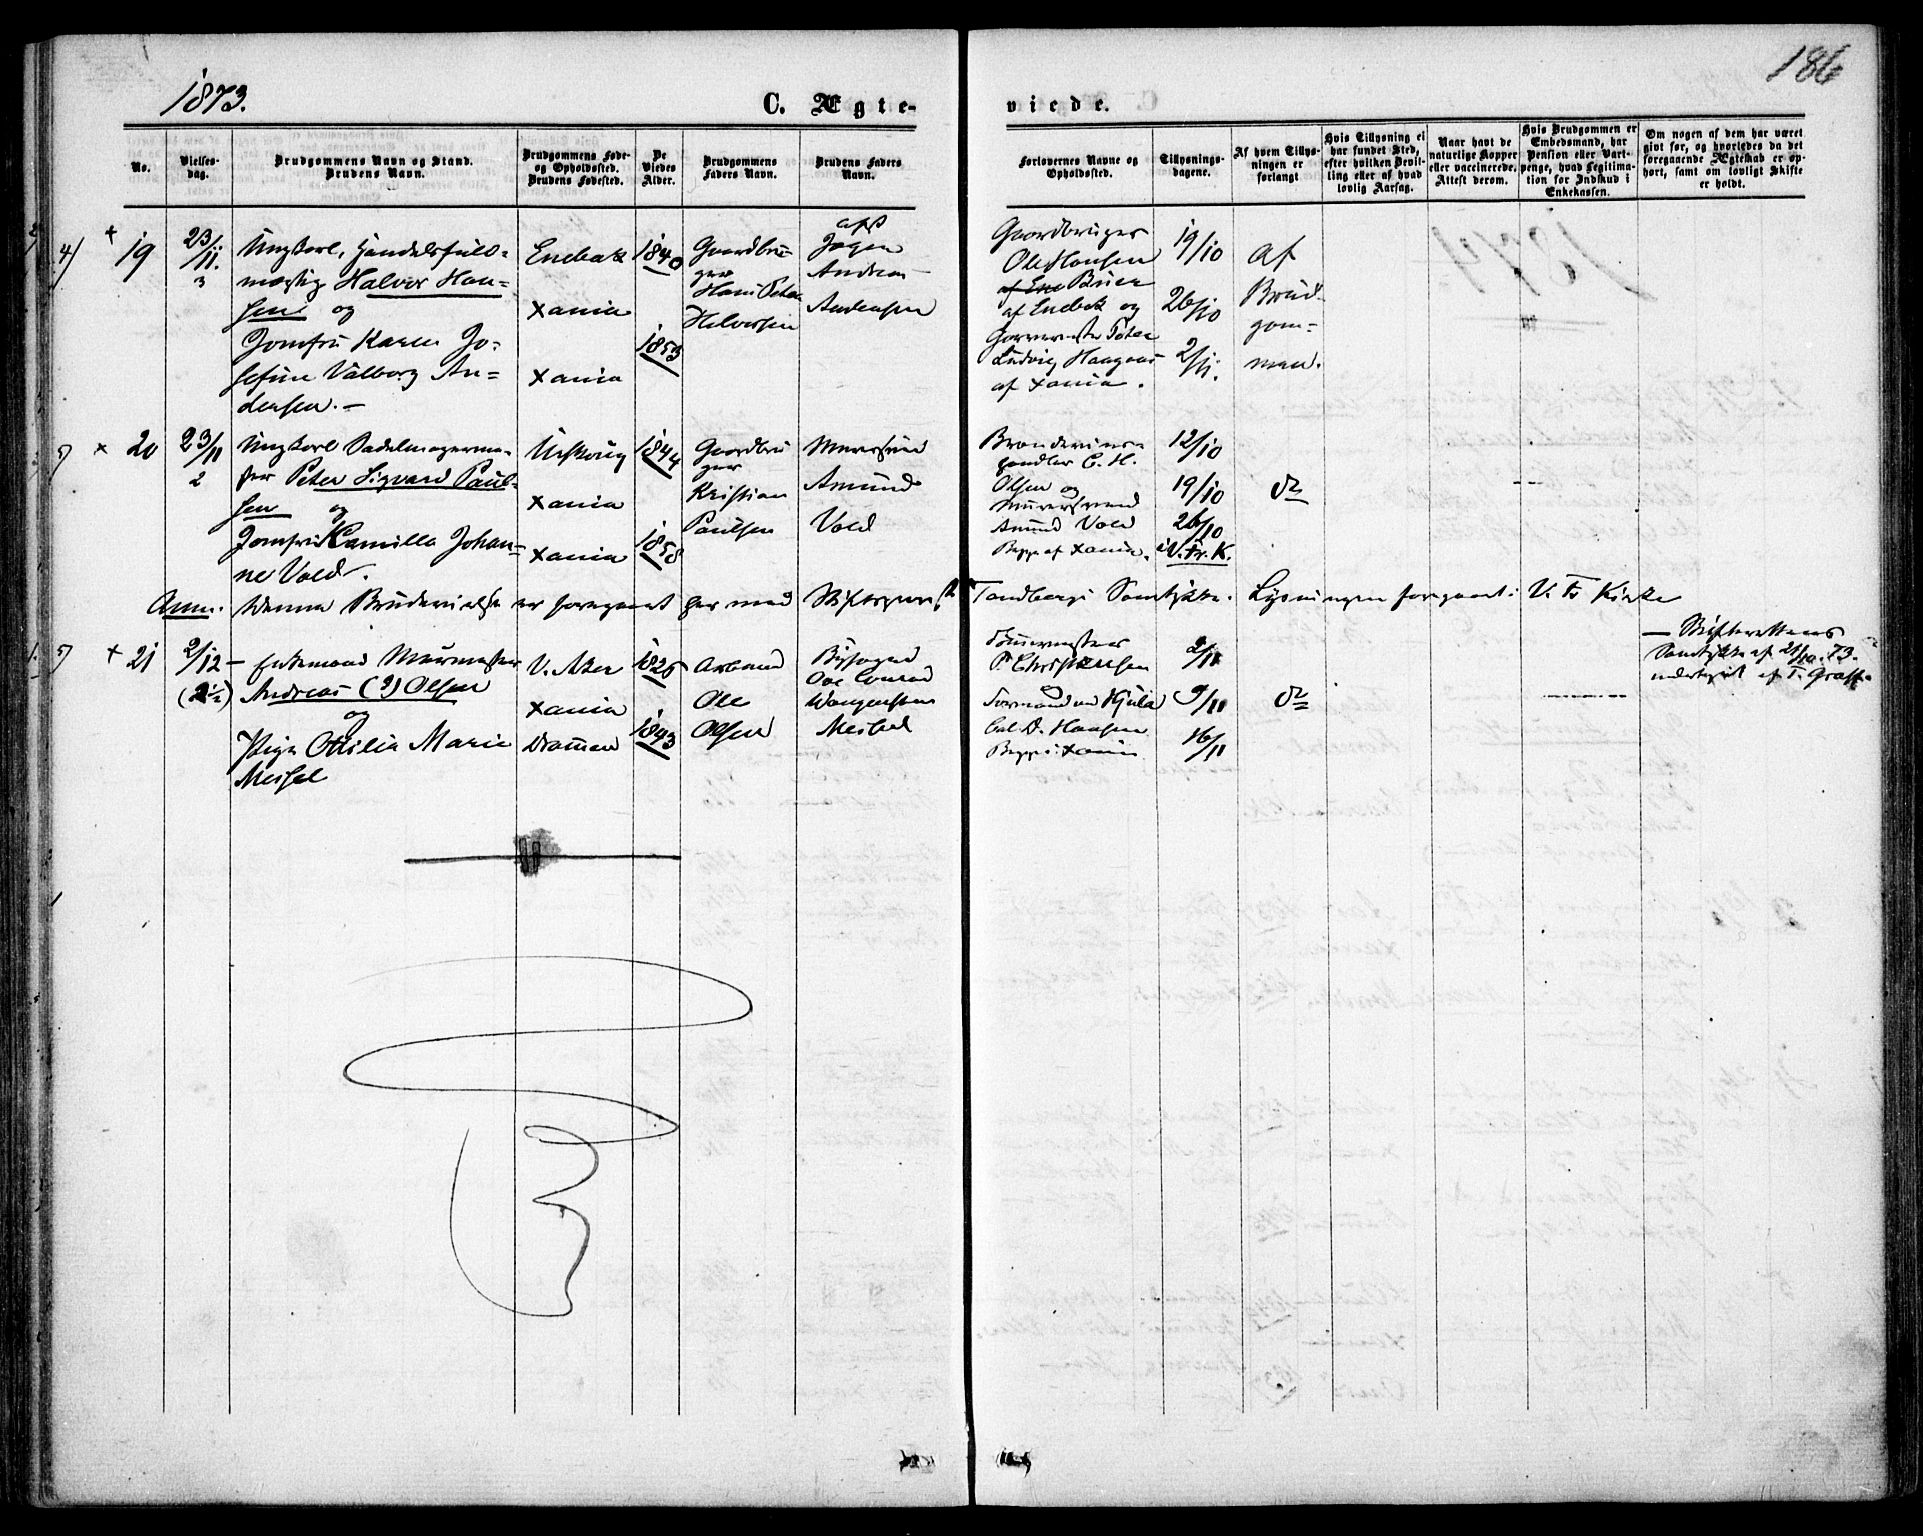 186
1873.
C. Ægte-
viede.
No.
Vielses-
dag.
Brudgommens Navn og Stand.
Brudens Navn.
Brudgommens Føde-
og Opholdssted.
Brudens Fødested.
De
Viedes
Alder.
Brudgommens
Faders Navn.
Brudens Faders
Navn.
Forlovernes Navne og
Opholdssted.
Tillysnings-
dagene.
Af hvem Tillys-
ningen er
forlangt
Hvis Tillysning ei
har fundet Sted,
efter hvilken Bevil-
ling eller af hvad
lovlig Aarsag.
Naar havt de
naturlige Kopper
eller vaccinerede.
Attest derom.
Hvis Brudgommen er
Embedsmand, har
Pension eller Vart-
penge, hvad Legitima-
tion for Indskud i
Enkekassen.
Om nogen af dem har været
givt før, og hvorledes da det
foregaaende Ægteskab er op-
hørt, samt om lovligt Skifte
er holdt.
4) + 19
23/11.
3
Ungkarl, Handelsfuld-
mægtig Halvor Han-
sen og
Jomfru Karen Jo-
sefine Valborg An-
dersen.-
Enebak
Xania
Xania
1840
1853
Gaardbru-
ger
Hans Peter
Halvorsen
Jøgen
Andreas
Andersen
Gaardbruger
Ole Hansen
af Enebak og
Ludvig Haagens
af Xania.
19/10
26/10
2/11.
af
Brud-
gom-
men.
5) × 20
23/11
2
Ungkarl Sadelmagerme-
ster Peter Sigvard Paul-
sen og
Jomfru Kamilla Johan-
ne Vold.
Urskoug
Xania
Xania
1844
1858
Gaardbru
ger
Kristian
Paulsen
Muursvend
Amund
Vold
Brændeviins-
handler C. H.
Olsen og
Muursvend
Amund Vold
Begge af Xania.
12/10
19/10
26/10
i V. Fr. K.
do
Anm. Denne Brudevielse er foregaaet her med Stiftsprovst Tandbergs Samtykke. Lysningen foregaaet i V. Fr Kirke
5) + 21
2/12
(2½)
- Enkemand Muurmester
Andreas (?) Olsen
og
Pige Ottilia Marie
Meisel
V. Aker
Xania
Drammen
1826
1843
Arbmd
Ole
Olsen
Byfoged
Ove Conrad
Wangensteen
Meisel
P. Christensen
og
Carl D. Hansen
Begge i Xania
2/11
9/11
16/11
do
- Skifterettens
Samtykke af 21/10. 73.
undertegnet af F. Graff.